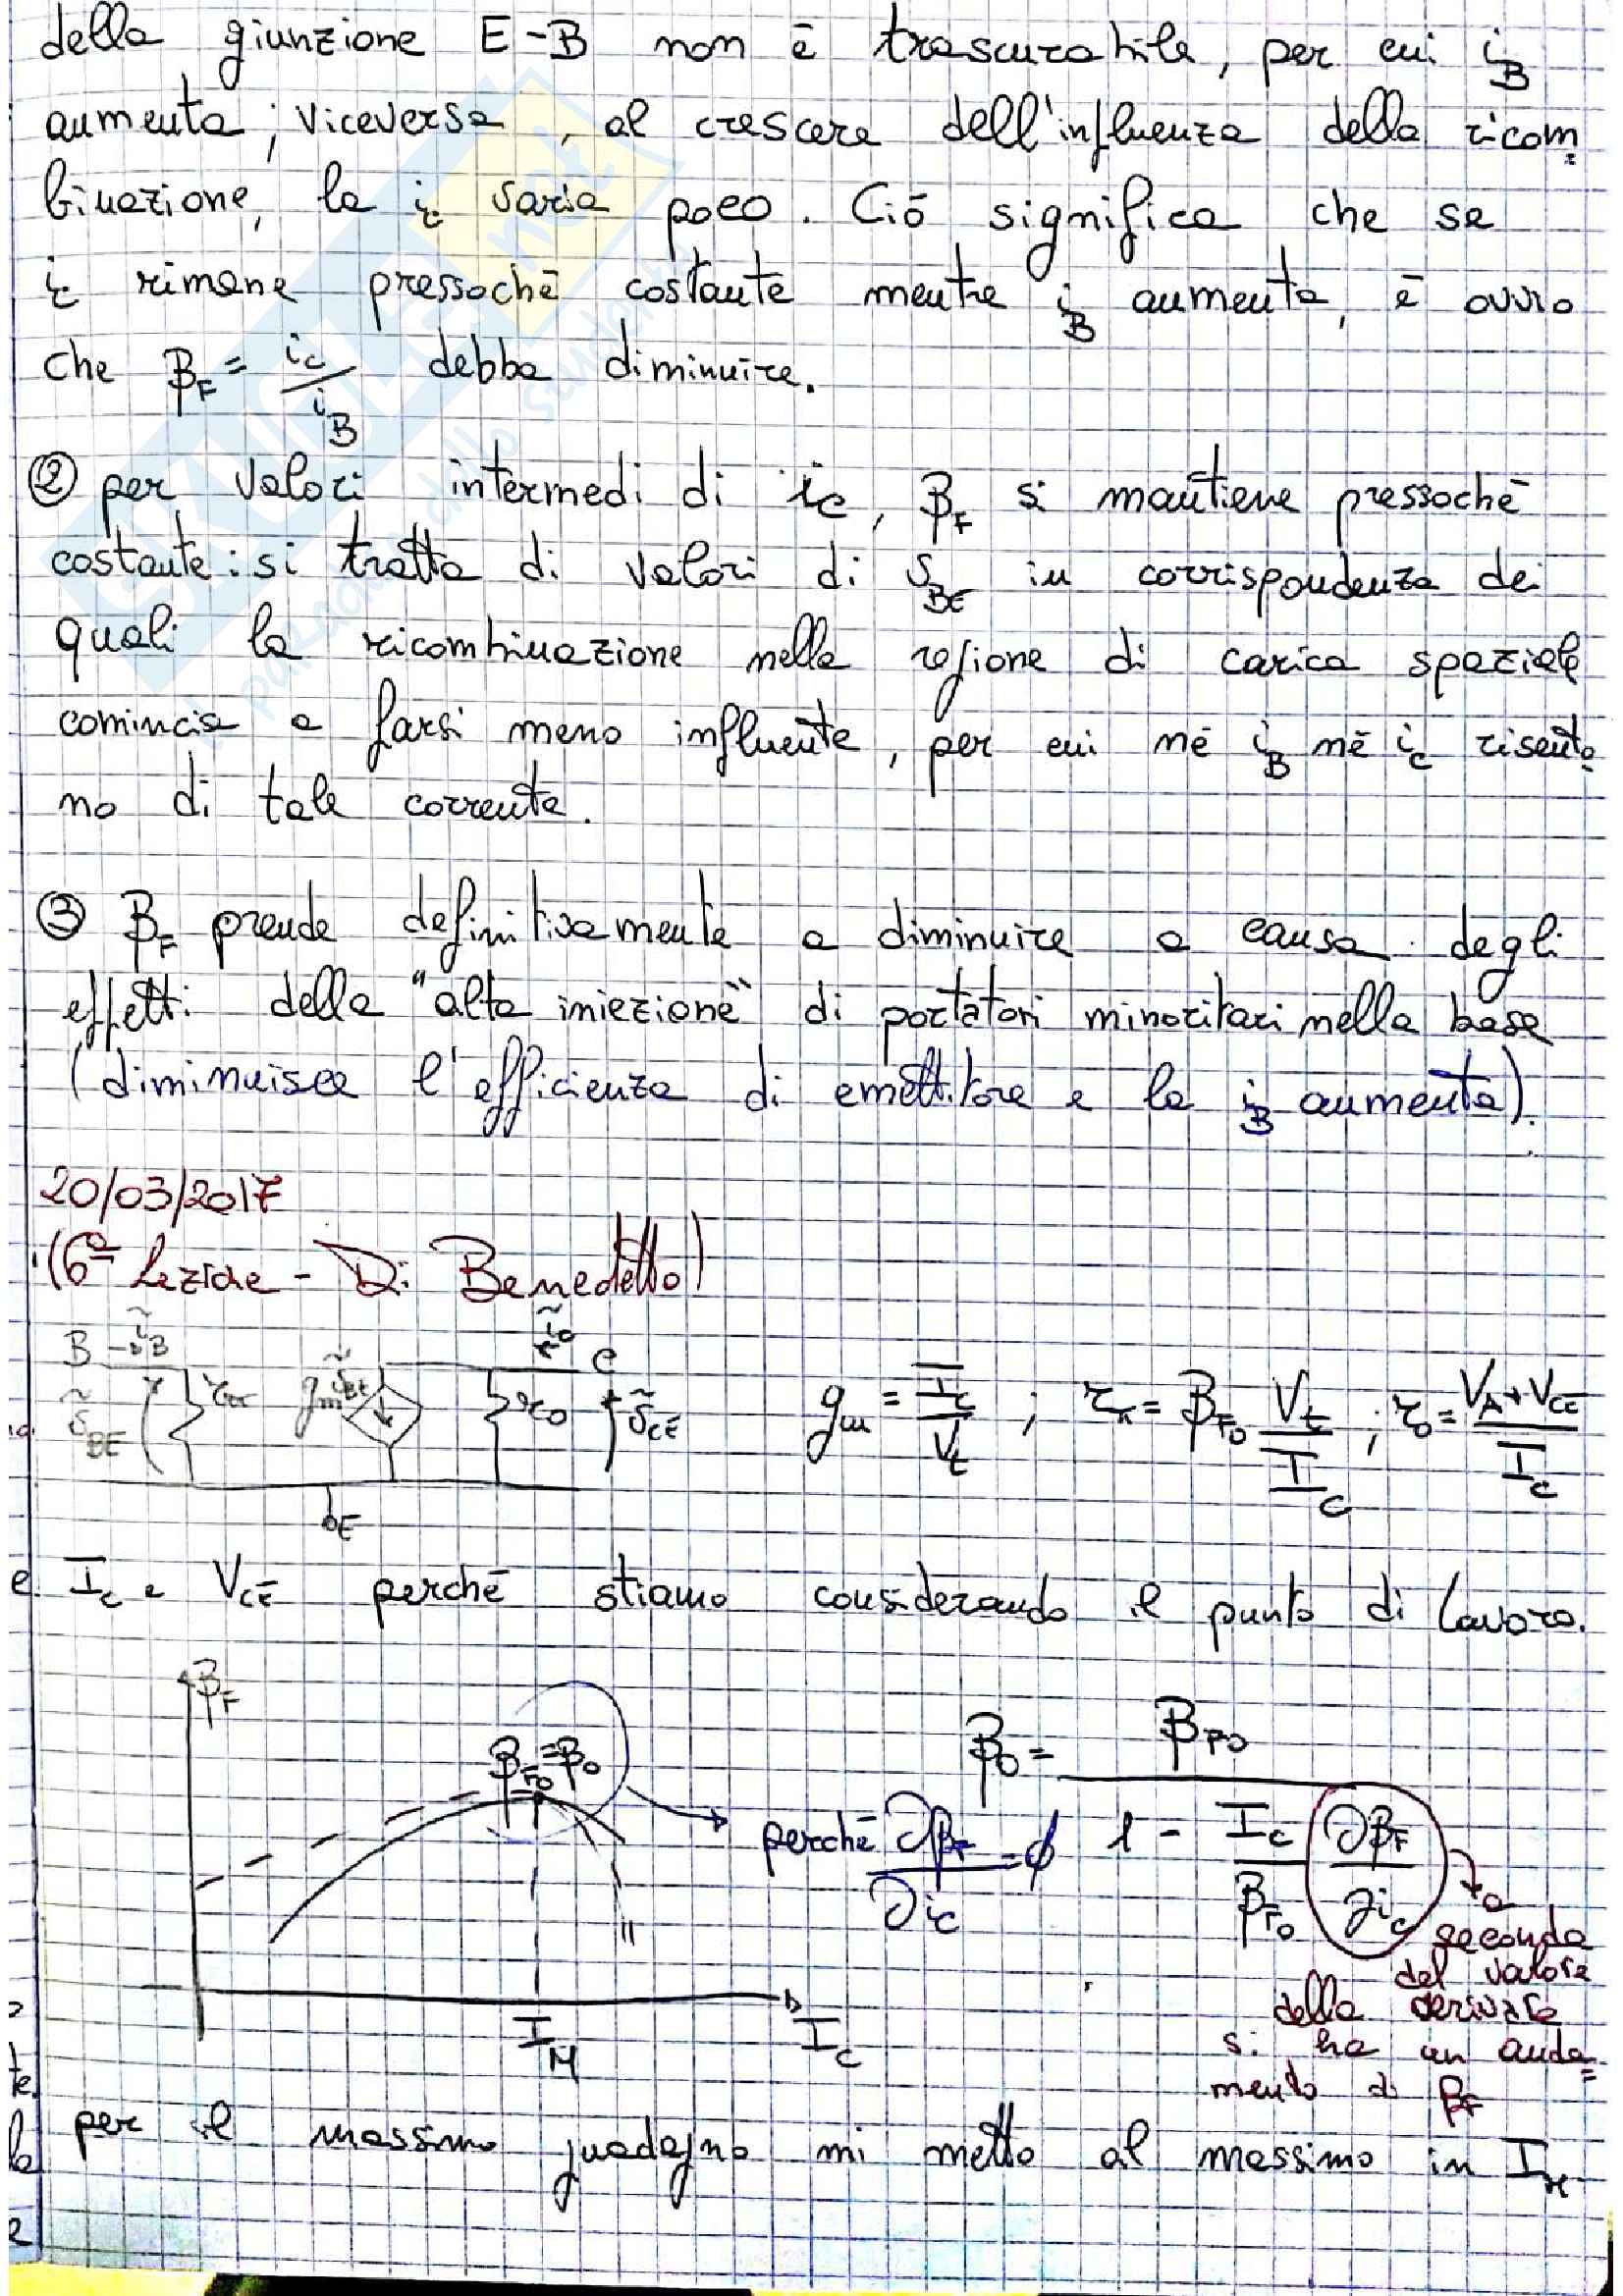 della giunzione E-B non è trascurabile, per cui i_B
aumenta; viceversa, al crescere dell'influenza della ricom
binazione, la i_c varia poco. Ciò significa che se
i_c rimane pressochè costante mentre i_B aumenta, è ovvio
che β_F = i_c / i_B debba diminuire.
② per valori intermedi di i_c, β_F si mantiene pressochè
costante: si tratta di valori di v_BE in corrispondenza dei
quali la ricombinazione nella regione di carica spaziale
comincia a farsi meno influente, per cui nè i_B nè i_c risento
no di tale corrente.
③ β_F prende definitivamente a diminuire a causa degli
effetti della "alta iniezione" di portatori minoritari nella base
(diminuisce l'efficienza di emettitore e la i_B aumenta).
20/03/2017
(6ª Lezione - Di Benedetto)
B ĩ_B ĩ_c C
ṽ_BE r_π g_m ṽ_BE r_o ṽ_CE
E
g_m = I_c / V_t ; r_π = β_F0 V_t / I_C ; r_o = (V_A + V_CE) / I_C
I_c e V_CE perchè stiamo considerando il punto di lavoro.
β_F
β_F0 = β_0
perchè ∂β_F / ∂i_c = ϕ
I_M I_C
β_0 = β_F0 / (1 - I_C / β_F0 ∂β_F / ∂i_c)
a
seconda
del valore
della derivata
si ha un anda=
mento di β_F
per il massimo guadagno mi metto al massimo in I_M.
SKUOLA.net
il paradiso dello studente